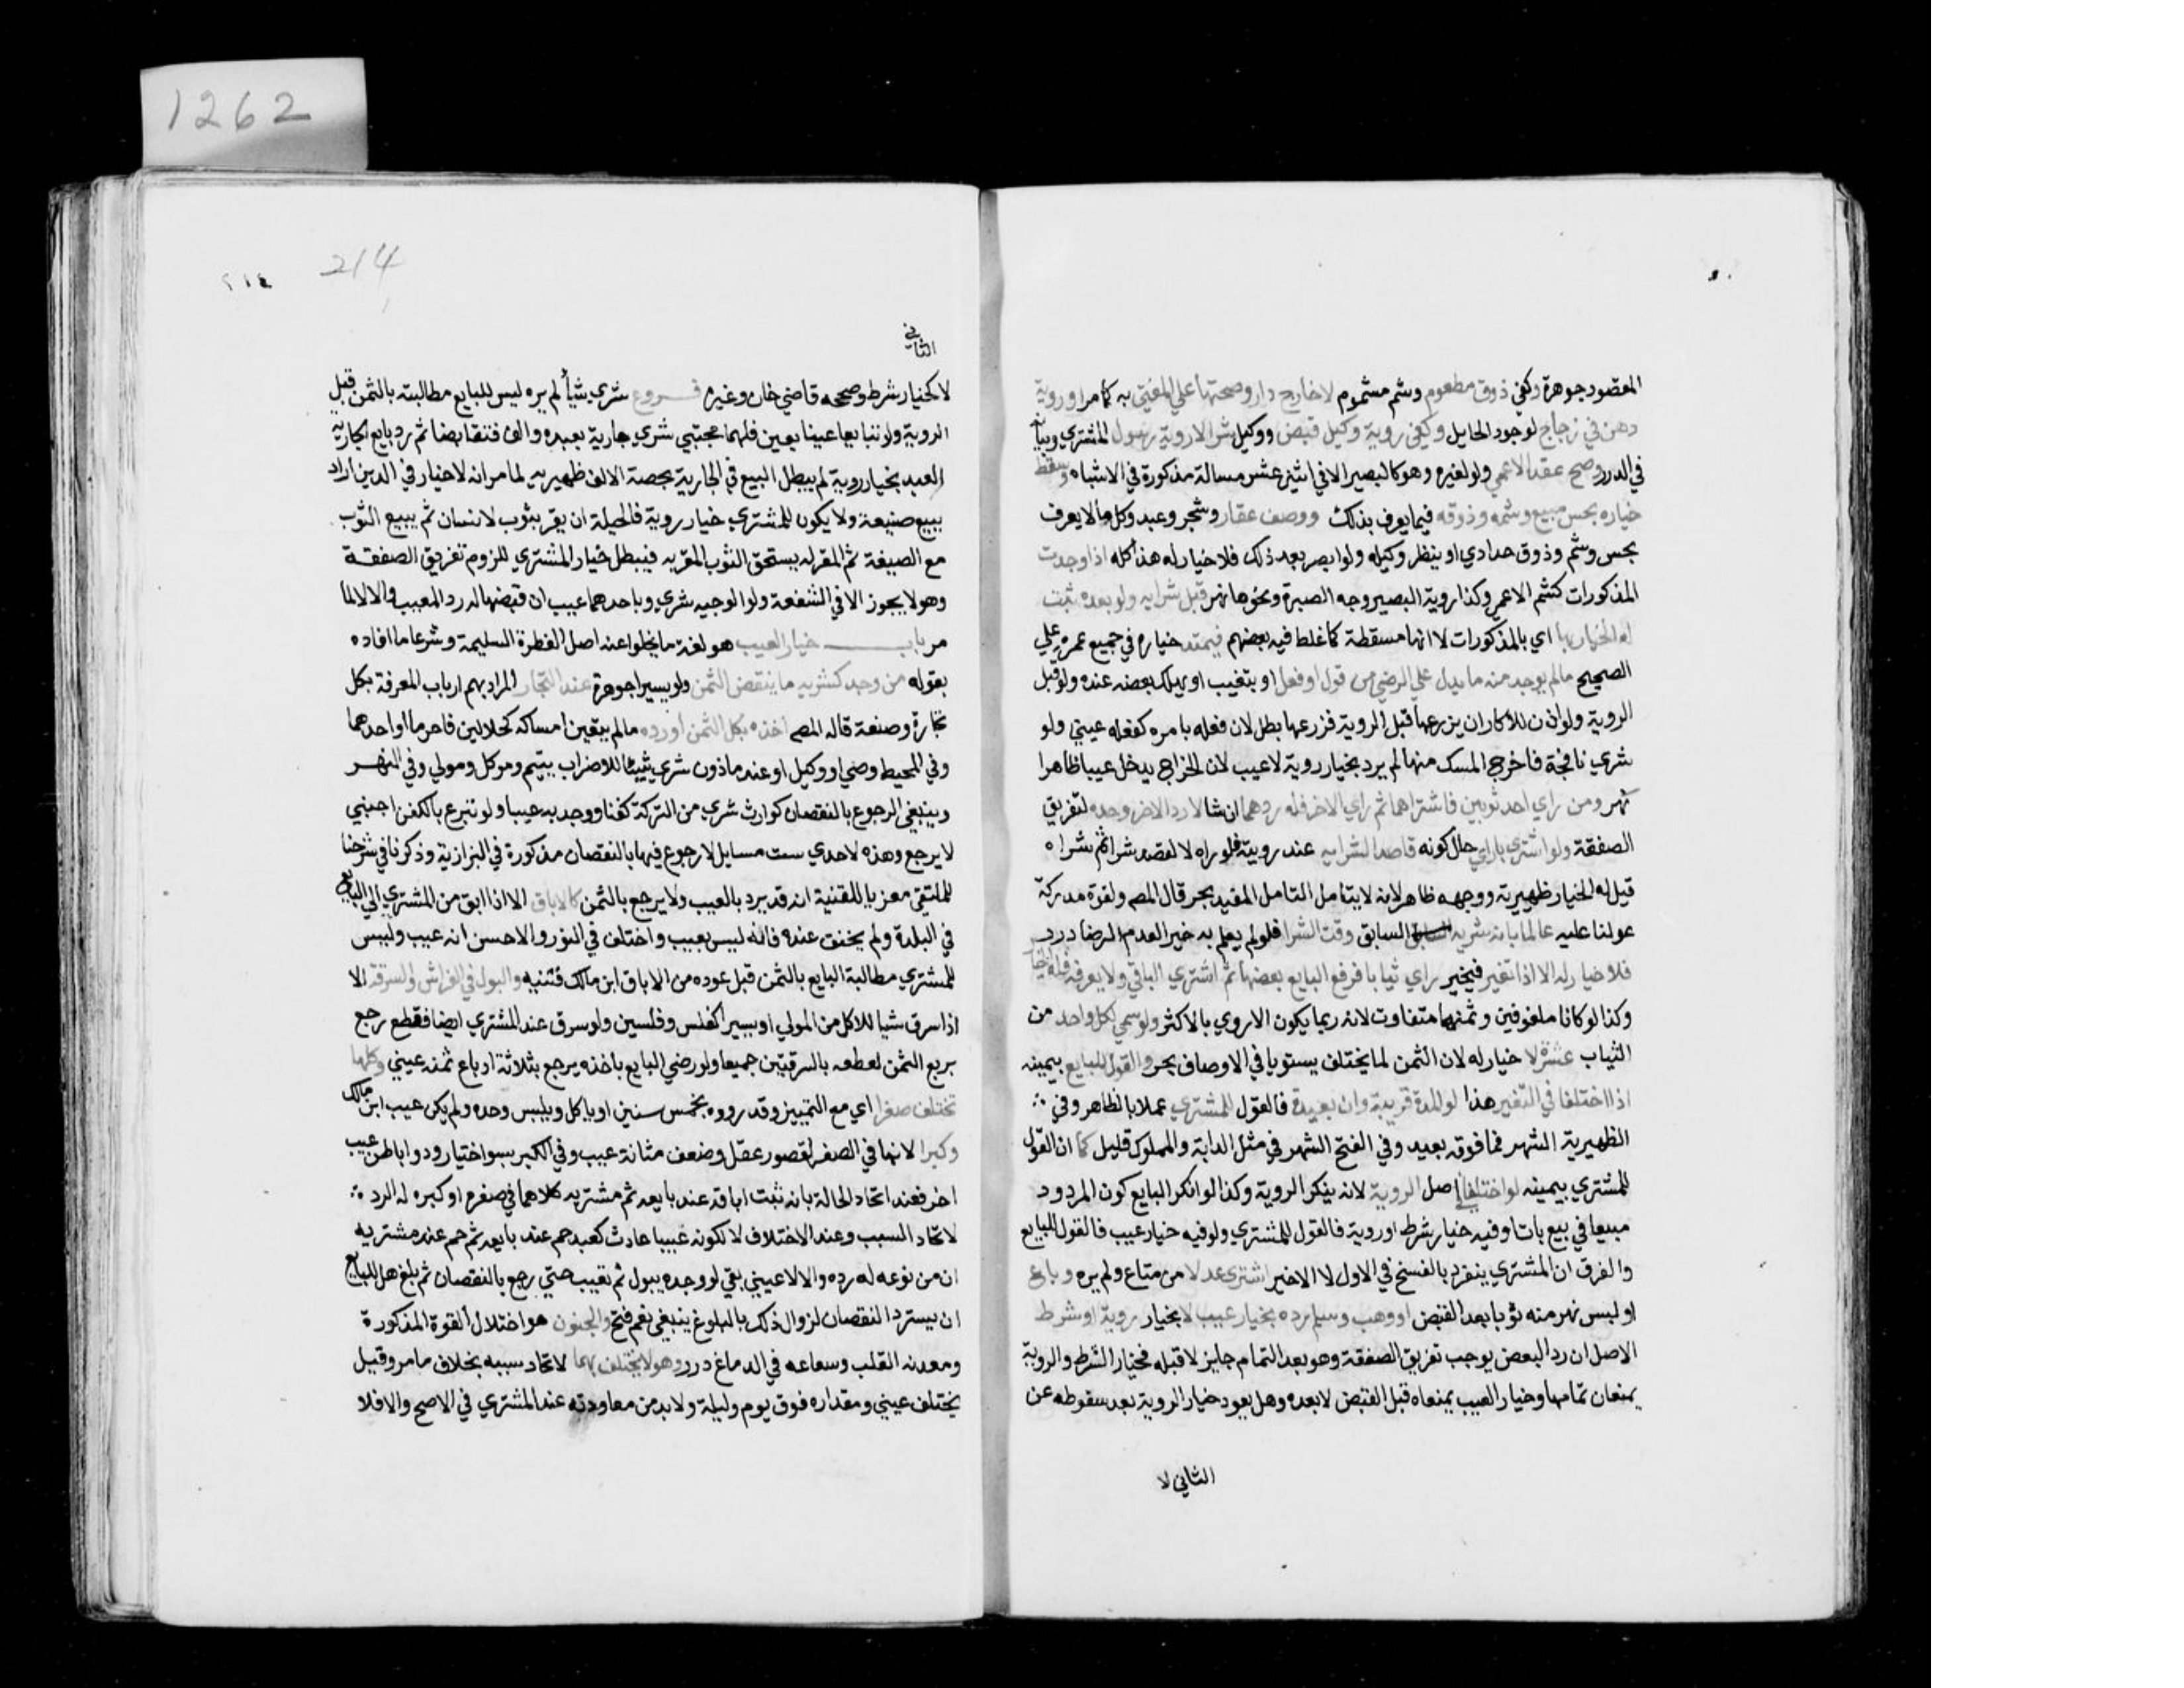 المقصود جوهرة وكفي ذوق مطعوم وشم مشموم لا خارج دار وصحنها علي المفتي به كما مر او روية
دهن في زجاج لوجود الحايل وكفي روية وكيل قبض ووكيل شرا لا روية رسول المشتري وبيانه
في الدرر وصح عقد الاعمي ولو لغيره وهو كالبصير الا في اثني عشر مسالة مذكورة في الاشباه وسقط
خياره بجس مبيع وشمه وذوقه فيما يعرف بذلك ووصف عقار وشجر وعبد وكل ما لا يعرف
بجس وشم وذوق حدادي او بنظر وكيله ولو ابصر بعد ذلك فلا خيار له هذا كله اذا وجدت
المذكورات كشم الاعمي وكذا روية البصير وجه الصبرة ونحوها نهر قبل شرايه ولو بعده ثبت
له الخيار بها اي بالمذكورات لا انها مسقطة كما غلط فيه بعضهم فيمتد خياره في جميع عمره علي
الصحيح مالم يوجد منه ما يدل علي الرضي من قول او فعل او يتغيب او يهلك بعضه عنده ولو قبل
الروية ولو اذن للاكار ان يزرعها قبل الروية فزرعها بطل لان فعله بامره كفعله عيني ولو
شري نافجة فاخرج المسك منها لم يرد بخيار روية لاعيب لان الاخراج يدخل عيبا ظاهرا
نهر ومن راي احد ثوبين فاشتراهما ثم راي الاخر فله ردهما ان شا لا رد الاخر وحده لتفريق
الصفقة ولو اشتري ما راي حال كونه قاصدا لشرايه عند رويته فلو راه لا لقصد شرا ثم شراه
قيل له الخيار ظهيرية ووجهه ظاهر لانه لا يتامل التامل المفيد بحر قال المص ولقوة مدركه
عولنا عليه عالما بانه مرييه السابق وقت الشرا فلو لم يعلم به خير لعدم الرضا درر
فلا خيار له الا اذا تغير فيخير راي ثيابا فرفع البايع بعضها ثم اشتري الباقي ولا يعرفه فله الخيار
وكذا لو كانا ملفوفين وثمنهما متفاوت لانه ربما يكون الاروي بالاكثر ولو سمي لكل واحد من
الثياب عشرة لا خيار له لان الثمن لما يختلف يستويا في الاوصاف بحر والقول للبايع بيمينه
اذا اختلفا في التغير هذا لو المدة قريبة وان بعيدة فالقول للمشتري عملا بالظاهر وفي
الظهيرية الشهر فما فوقه بعيد وفي الفتح الشهر في مثل الدابة والمملوك قليل كما ان القول
للمشتري بيمينه لو اختلفا في اصل الروية لانه ينكر الروية وكذا لو انكر البايع كون المردود
مبيعا في بيع بات او فيه خيار شرط او روية فالقول للمشتري ولو فيه خيار عيب فالقول للبايع
والفرق ان المشتري ينفرد بالفسخ في الاول لا الاخير اشتري عدلا من متاع ولم يره وباع
او لبس نهر منه ثوبا بعد القبض او وهب وسلم رده بخيار عيب لا بخيار روية او شرط
الاصل ان رد البعض يوجب تفريق الصفقة وهو بعد التمام جايز لا قبله فخيار الشرط والروية
يمنعان تمامها وخيار العيب يمنعاه قبل القبض لا بعده وهل يعود خيار الروية بعد سقوطه عن
الثاني لا
1262
214
٢١٤
الثاني
لا كخيار شرط وصححه قاضي خان وغيره فروع شري شيأ لم يره ليس للبايع مطالبته بالثمن قبل
الروية ولو تبايعا عينا بعين فلهما مجتبي شري جارية بعبده والف فتقابضا ثم رد بايع الجارية
العبد بخيار روية لم يبطل البيع في الجارية بحصة الالف ظهيرية لما مر انه لا خيار في الدين اراد
بيع ضيعة ولا يكون للمشتري خيار روية فالحيلة ان يقر بثوب لانسان ثم يبيع الثوب
مع الضيعة ثم المقر له يستحق الثوب المقر به فيبطل خيار المشتري للزوم تفريق الصفقة
وهو لا يجوز الا في الشفعة ولوالوجيه شري وباحدهما عيب ان قبضهما له رد المعيب والا لا لما
مر باب خيار العيب هو لغة ما يخلوا عنه اصل الفطرة السليمة وشرعا ما افاده
بقوله من وجد بمشريه ما ينقص الثمن ولو يسيرا جوهرة عند التجار المراد بهم ارباب المعرفة بكل
تجارة وصنعة قاله المص اخذه بكل الثمن او رده مالم يتعين امساكه كحلالين فاحرما او احدهما
وفي المحيط وصي او وكيل او عبد ماذون شري شيئا للاضراب بيتيم وموكل ومولي وفي النهر
وينبغي الرجوع بالنقصان كوارث شري من التركة كفنا ووجد به عيبا ولو تبرع بالكفن اجنبي
لا يرجع وهذه لاحدي ست مسايل لا رجوع فيها بالنقصان مذكورة في البزازية وذكرنا في شرحنا
للملتقي معزيا للقنية انه قد يرد بالعيب ولا يرجع بالثمن كالاباق الا اذا ابق من المشتري الي البايع
في البلدة ولم يختف عنده فانه ليس بعيب واختلف في الثور والاحسن انه عيب وليس
للمشتري مطالبة البايع بالثمن قبل عوده من الاباق ابن مالك قنيه والبول في الفراش والسرقة الا
اذا سرق شيا للاكل من المولي او يسيرا كفلس وفلسين ولو سرق عند المشتري ايضا فقطع رجع
بربع الثمن لقطعه بالسرقتين جميعا ولو رضي البايع باخذه يرجع بثلاثة ارباع ثمنه عيني وكلها
تختلف صغرا اي مع التمييز وقدروه بخمس سنين او ياكل ويلبس وحده ولم يكن عيب ابن مالك
وكبرا لانها في الصغر لقصور عقل وضعف مثانة عيب وفي الكبر بسو اختيار ودو اباطن عيب
اخر فعند اتحاد الحالة بانه ثبت اباقه عند بايعه ثم مشتريه كلاهما في صغره او كبره له الرد
لاتحاد السبب وعند الاختلاف لا لكونه عيبا حادث كعبد حم عند بايعه ثم حم عند مشتريه
ان من نوعه له رده والا لا عيني بقي لو وجده يبول ثم تعيب حتي رجع بالنقصان ثم بلغ هل للبايع
ان يسترد النقصان لزوال ذلك بالبلوغ ينبغي نعم فتح والجنون هو اختلال القوة المذكورة
ومعدنه القلب وسعاعه في الدماغ درر وهو لا يختلف بهما لاتحاد سببه بخلاف ما مر وقيل
يختلف عيني ومقداره فوق يوم وليلة ولا بد من معاودته عند المشتري في الاصح والا فلا